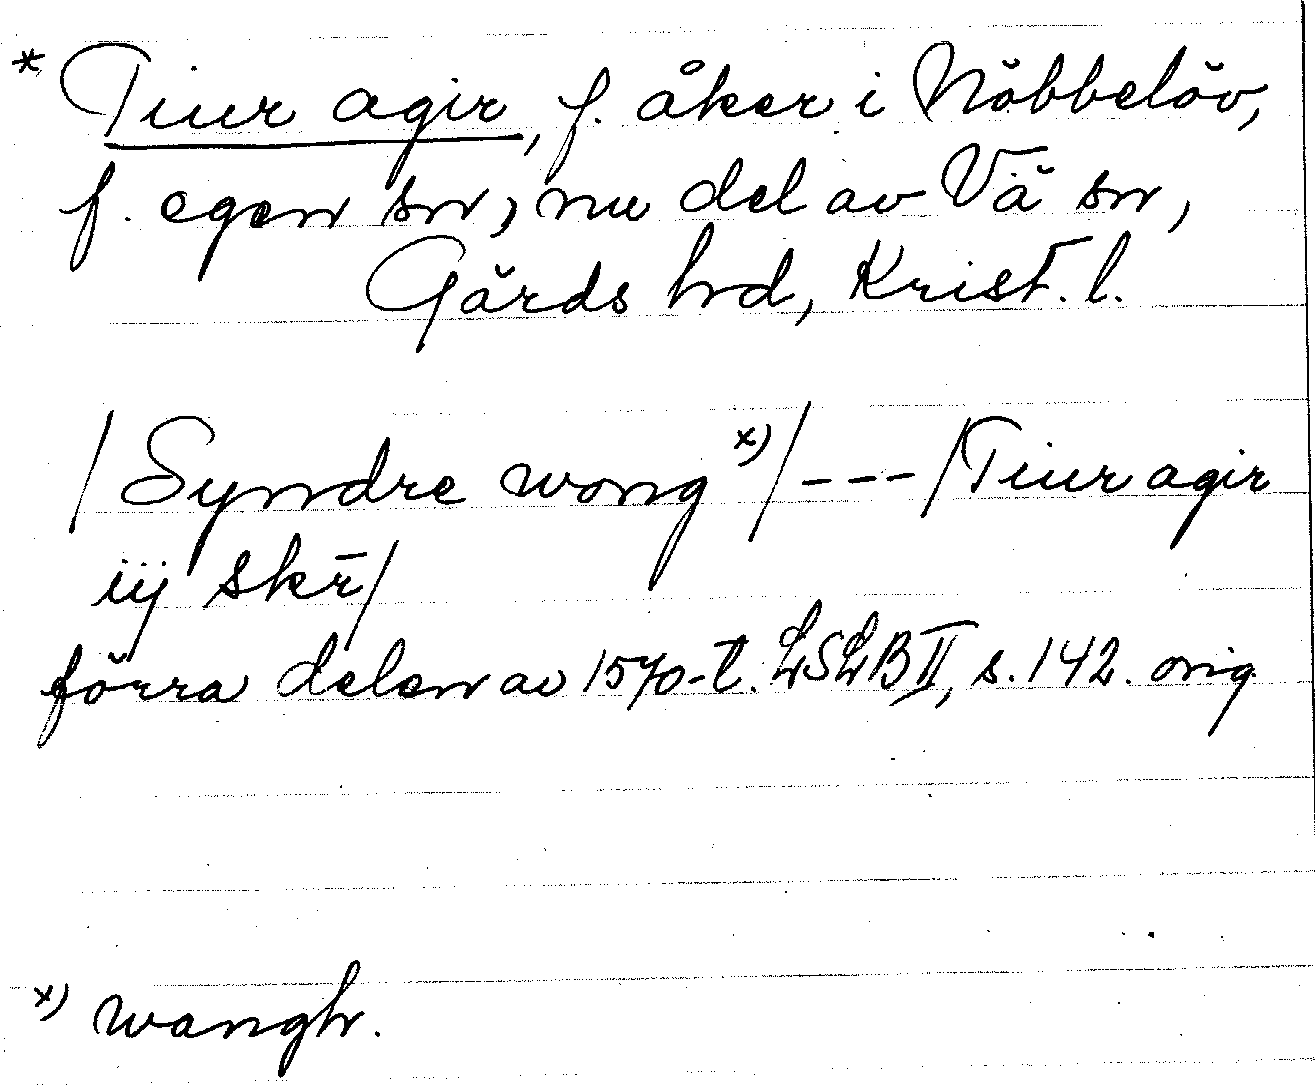 * Tiur agir, f. åker i Nöbbelöv,
f. egen sn, nu del av Vä sn,
Gärds hd, Krist. l.
/Syndre wong x)/ --- /Tiur agir
iij skr̄/
förra delen av 1570-t. LSLB II, s. 142. orig.
x) wangh.